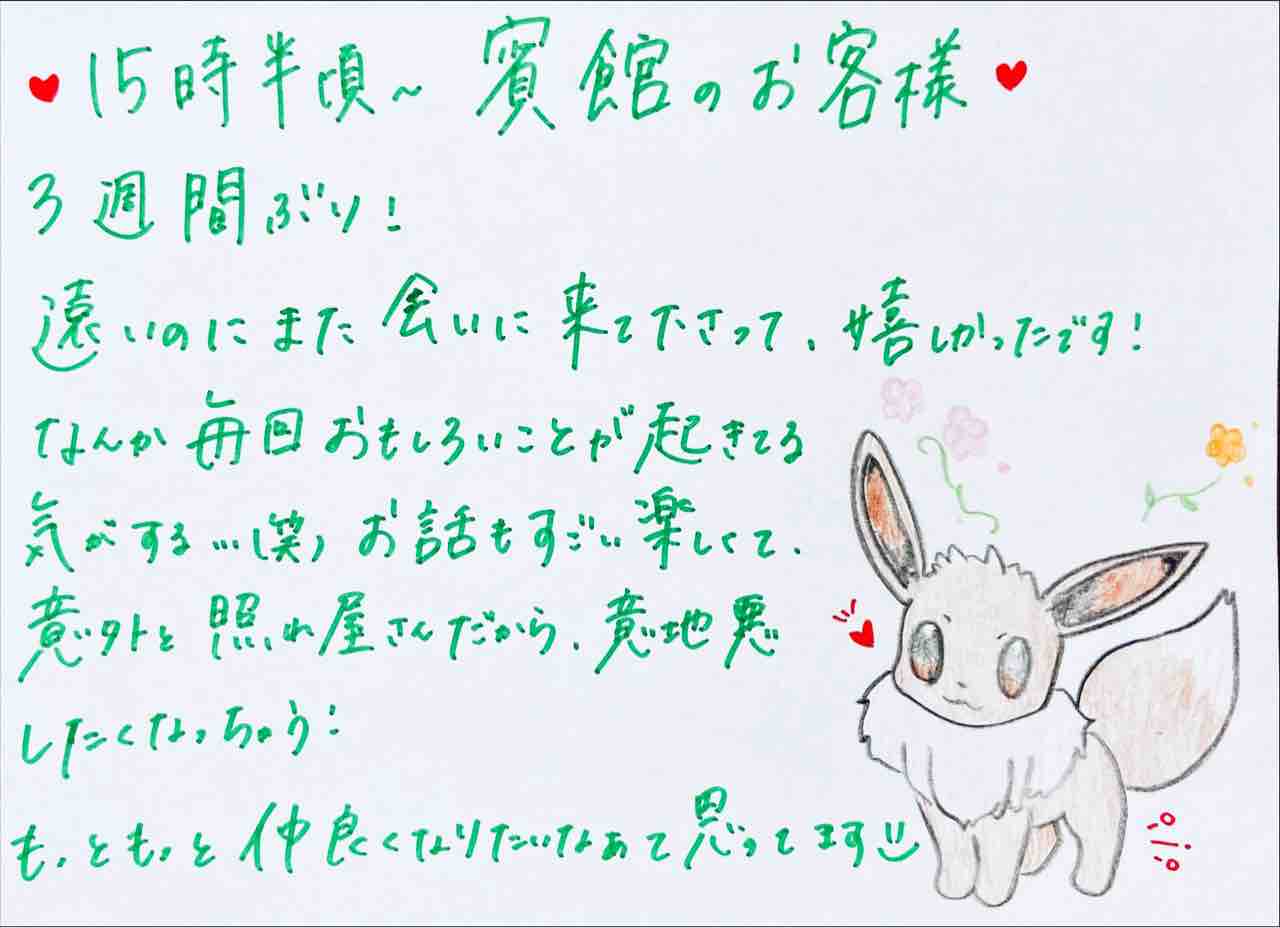 ♥15時半頃～ 賓館のお客様♥
3週間ぶり!
遠いのにまた会いに来て下さって、嬉しかったです!
なんか毎回おもしろいことが起きてる
気がする…(笑) お話もすごい楽しくて、
意外と照れ屋さんだから、意地悪
したくなっちゃう!
もっともっと仲良くなりたいなぁて思ってます